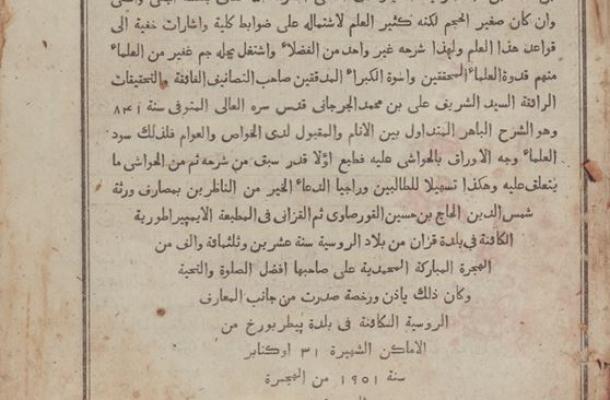 وان كان صغير الحجم لكنه كثير العلم لاشتماله على ضوابط كلية واشارات خفية الى
قواعد هذا العلم ولهذا شرحه غير واحد من الفضلاء واشتغل بحله جم غفير من العلماء
منهم قدوة العلماء المحققين واسوة الكبراء المدققين صاحب التصانيف الفائقة والتحقيقات
الرائقة السيد الشريف على بن محمد الجرجانى قدس سره العالى المتوفى سنة ٨٤١
وهو الشرح الباهر المتداول بين الانام والمقبول لدى الخواص والعوام فلذلك سود
العلماء وجه الاوراق بالحواشى عليه فطبع اولا قدر سبق من شرحه ثم من الحواشى ما
يتعلق عليه وهكذا تسهيلا للطالبين وراجيا الدعاء الخير من الناظرين بمصارف ورثة
شمس الدين الحاج بن حسين القورصاوى ثم القزانى فى المطبعة الايمپيراطورية
الكائنة فى بلدة قزان من بلاد الروسية سنة عشرين وثلثمائة والف من
الهجرة المباركة المحمدية على صاحبها افضل الصلوة والتحية
وكان ذلك باذن ورخصة صدرت من جانب المعارف
الروسية الكائنة فى بلدة پيطربورخ من
الاماكن الشهيرة ٣١ اوكتابر
سنة ١٩٠١ من الهجرة